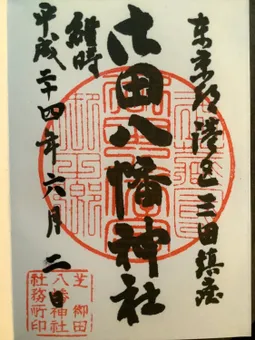 東京都港区三田鎮座
御田八幡神社
維時
平成二十四年六月二日
芝御田
八幡神社
社務所印